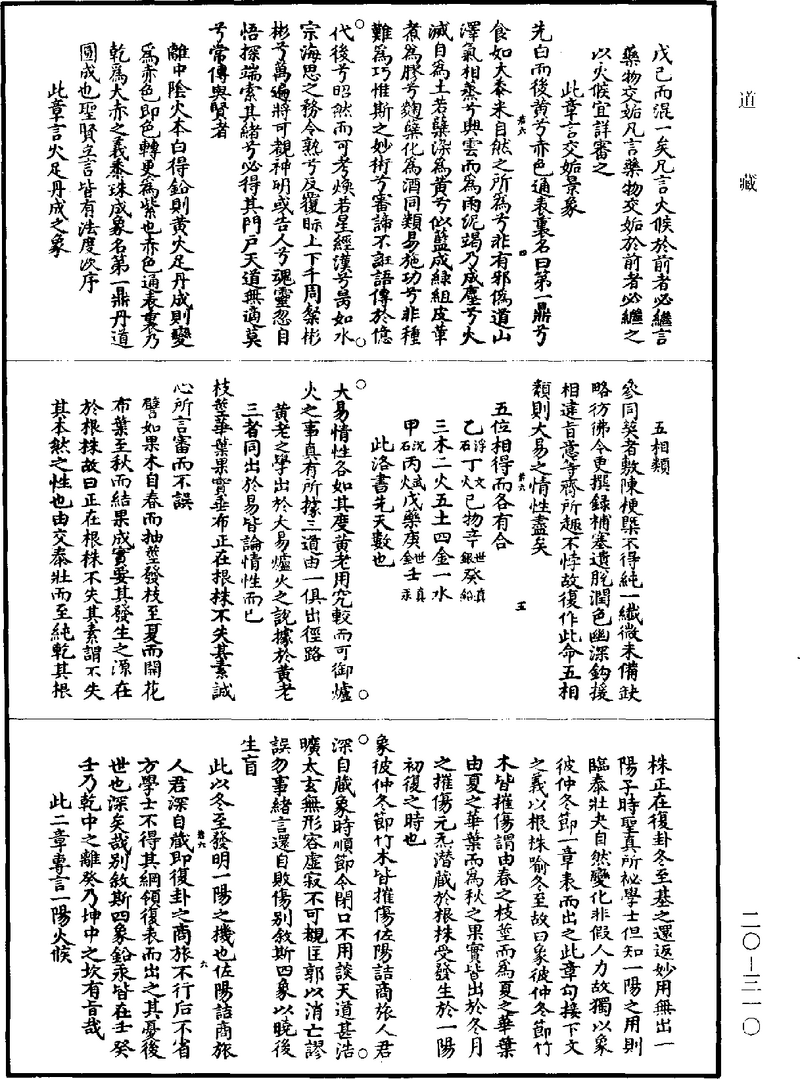 道藏
戊己而混一矣凡言火候於前者必繼言
藥物交姤凡言藥物交姤於前者必繼之
以火候宜詳審之
此章言交姤景象
先白而後黃兮赤色通表裏名曰第一鼎兮
食如大黍米自然之所為兮非有邪偽道山
澤氣相蒸兮興雲而為雨泥竭乃成塵兮火
滅自為土若蘗染為黃兮似藍成綠組皮革
煮為膠兮麴蘗化為酒同類易施功兮非種
難為巧惟斯之妙術兮審諦不誑語傳於億
代後兮昭然而可考煥若星經漢兮昺如水
宗海思之務令熟兮反覆眎上下千周粲彬
彬兮萬遍將可覩神明或告人兮魂靈忽自
悟探端索其緒兮必得其門戶天道無適莫
兮常傳與賢者
離中陰火本白得鉛則黃火足丹成則變
為赤色即色轉更為紫也赤色通表裏乃
乾為大赤之義黍珠成象名第一鼎丹道
圓成也聖賢立言皆有法度次序
此章言火足丹成之象
五相類
參同契者敷陳梗槩不得純一纖微未備缺
略彷彿今更撰錄補塞遺脫潤色幽深鈎援
相逮旨意等齊所趣不悖故復作此命五相
類則大易之情性盡矣
五位相得而各有合
乙浮石丁文火己物辛世銀癸真鉛
三木二火五土四金一水
甲沉石丙武火戊藥庚世金壬真汞
此洛書先天數也
大易情性各如其度黃老用究較而可御爐
火之事真有所據三道由一俱出徑路
黃老之學出於大易爐火之說據於黃老
三者同出於易皆論情性而已
枝莖華葉果實垂布正在根株不失其素誠
心所言審而不誤
譬如果木自春而抽莖發枝至夏而開花
布葉至秋而結果成實要其發生之源在
於根株故曰正在根株不失其素謂不失
其本然之性也由交泰壯而至純乾其根
株正在復卦冬至基之還返妙用無出一
陽子時聖真所祕學士但知一陽之用則
臨泰壯夬自然變化非假人力故獨以象
彼仲冬節一章表而出之此章勾接下文
之義以根株喻冬至故曰象彼仲冬節竹
木皆摧傷謂由春之枝莖而為夏之華葉
由夏之華葉而為秋之果實皆出於冬月
之摧傷元炁潛藏於根株受發生於一陽
初復之時也
象彼仲冬節竹木皆摧傷佐陽詰商旅人君
深自藏象時順節令閉口不用談天道甚浩
曠太玄無形容虛寂不可覩匡郭以消亡謬
誤勿事緒言還自敗傷別敘斯四象以曉後
生盲
此以冬至發明一陽之機也佐陽詰商旅
人君深自藏即復卦之商旅不行后不省
方學士不得其綱領復表而出之其憂後
世也深矣哉別敘斯四象鉛汞皆在壬癸
壬乃乾中之離癸乃坤中之坎有旨哉
此二章專言一陽火候
二〇—三一〇